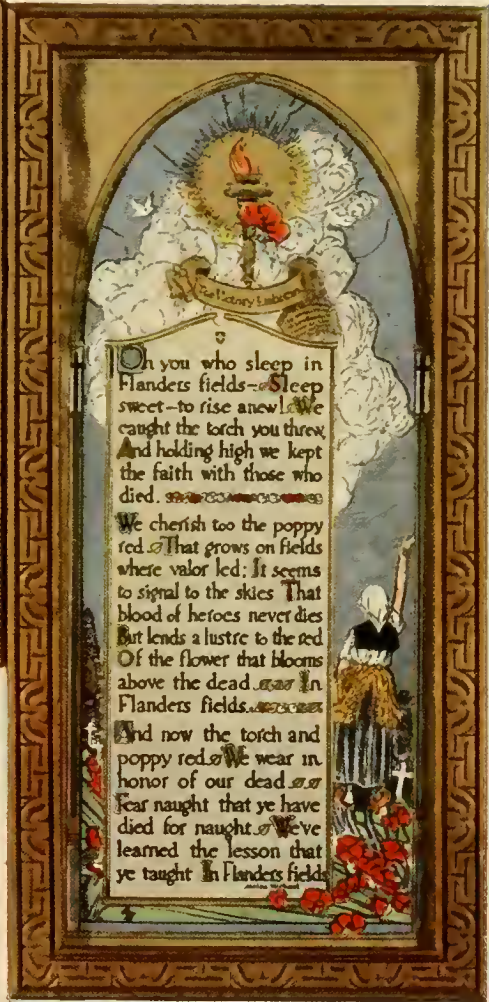 The Victory Emblem
Oh you who sleep in
Flanders fields – Sleep
sweet – to rise anew! We
caught the torch you threw,
And holding high we kept
the faith with those who
died.
We cherish too the poppy
red That grows on fields
where valor led: It seems
to signal to the skies That
blood of heroes never dies
But lends a lustre to the red
Of the flower that blooms
above the dead In
Flanders fields.
And now the torch and
poppy red We wear in
honor of our dead
Fear naught that ye have
died for naught We've
learned the lesson that
ye taught In Flanders fields